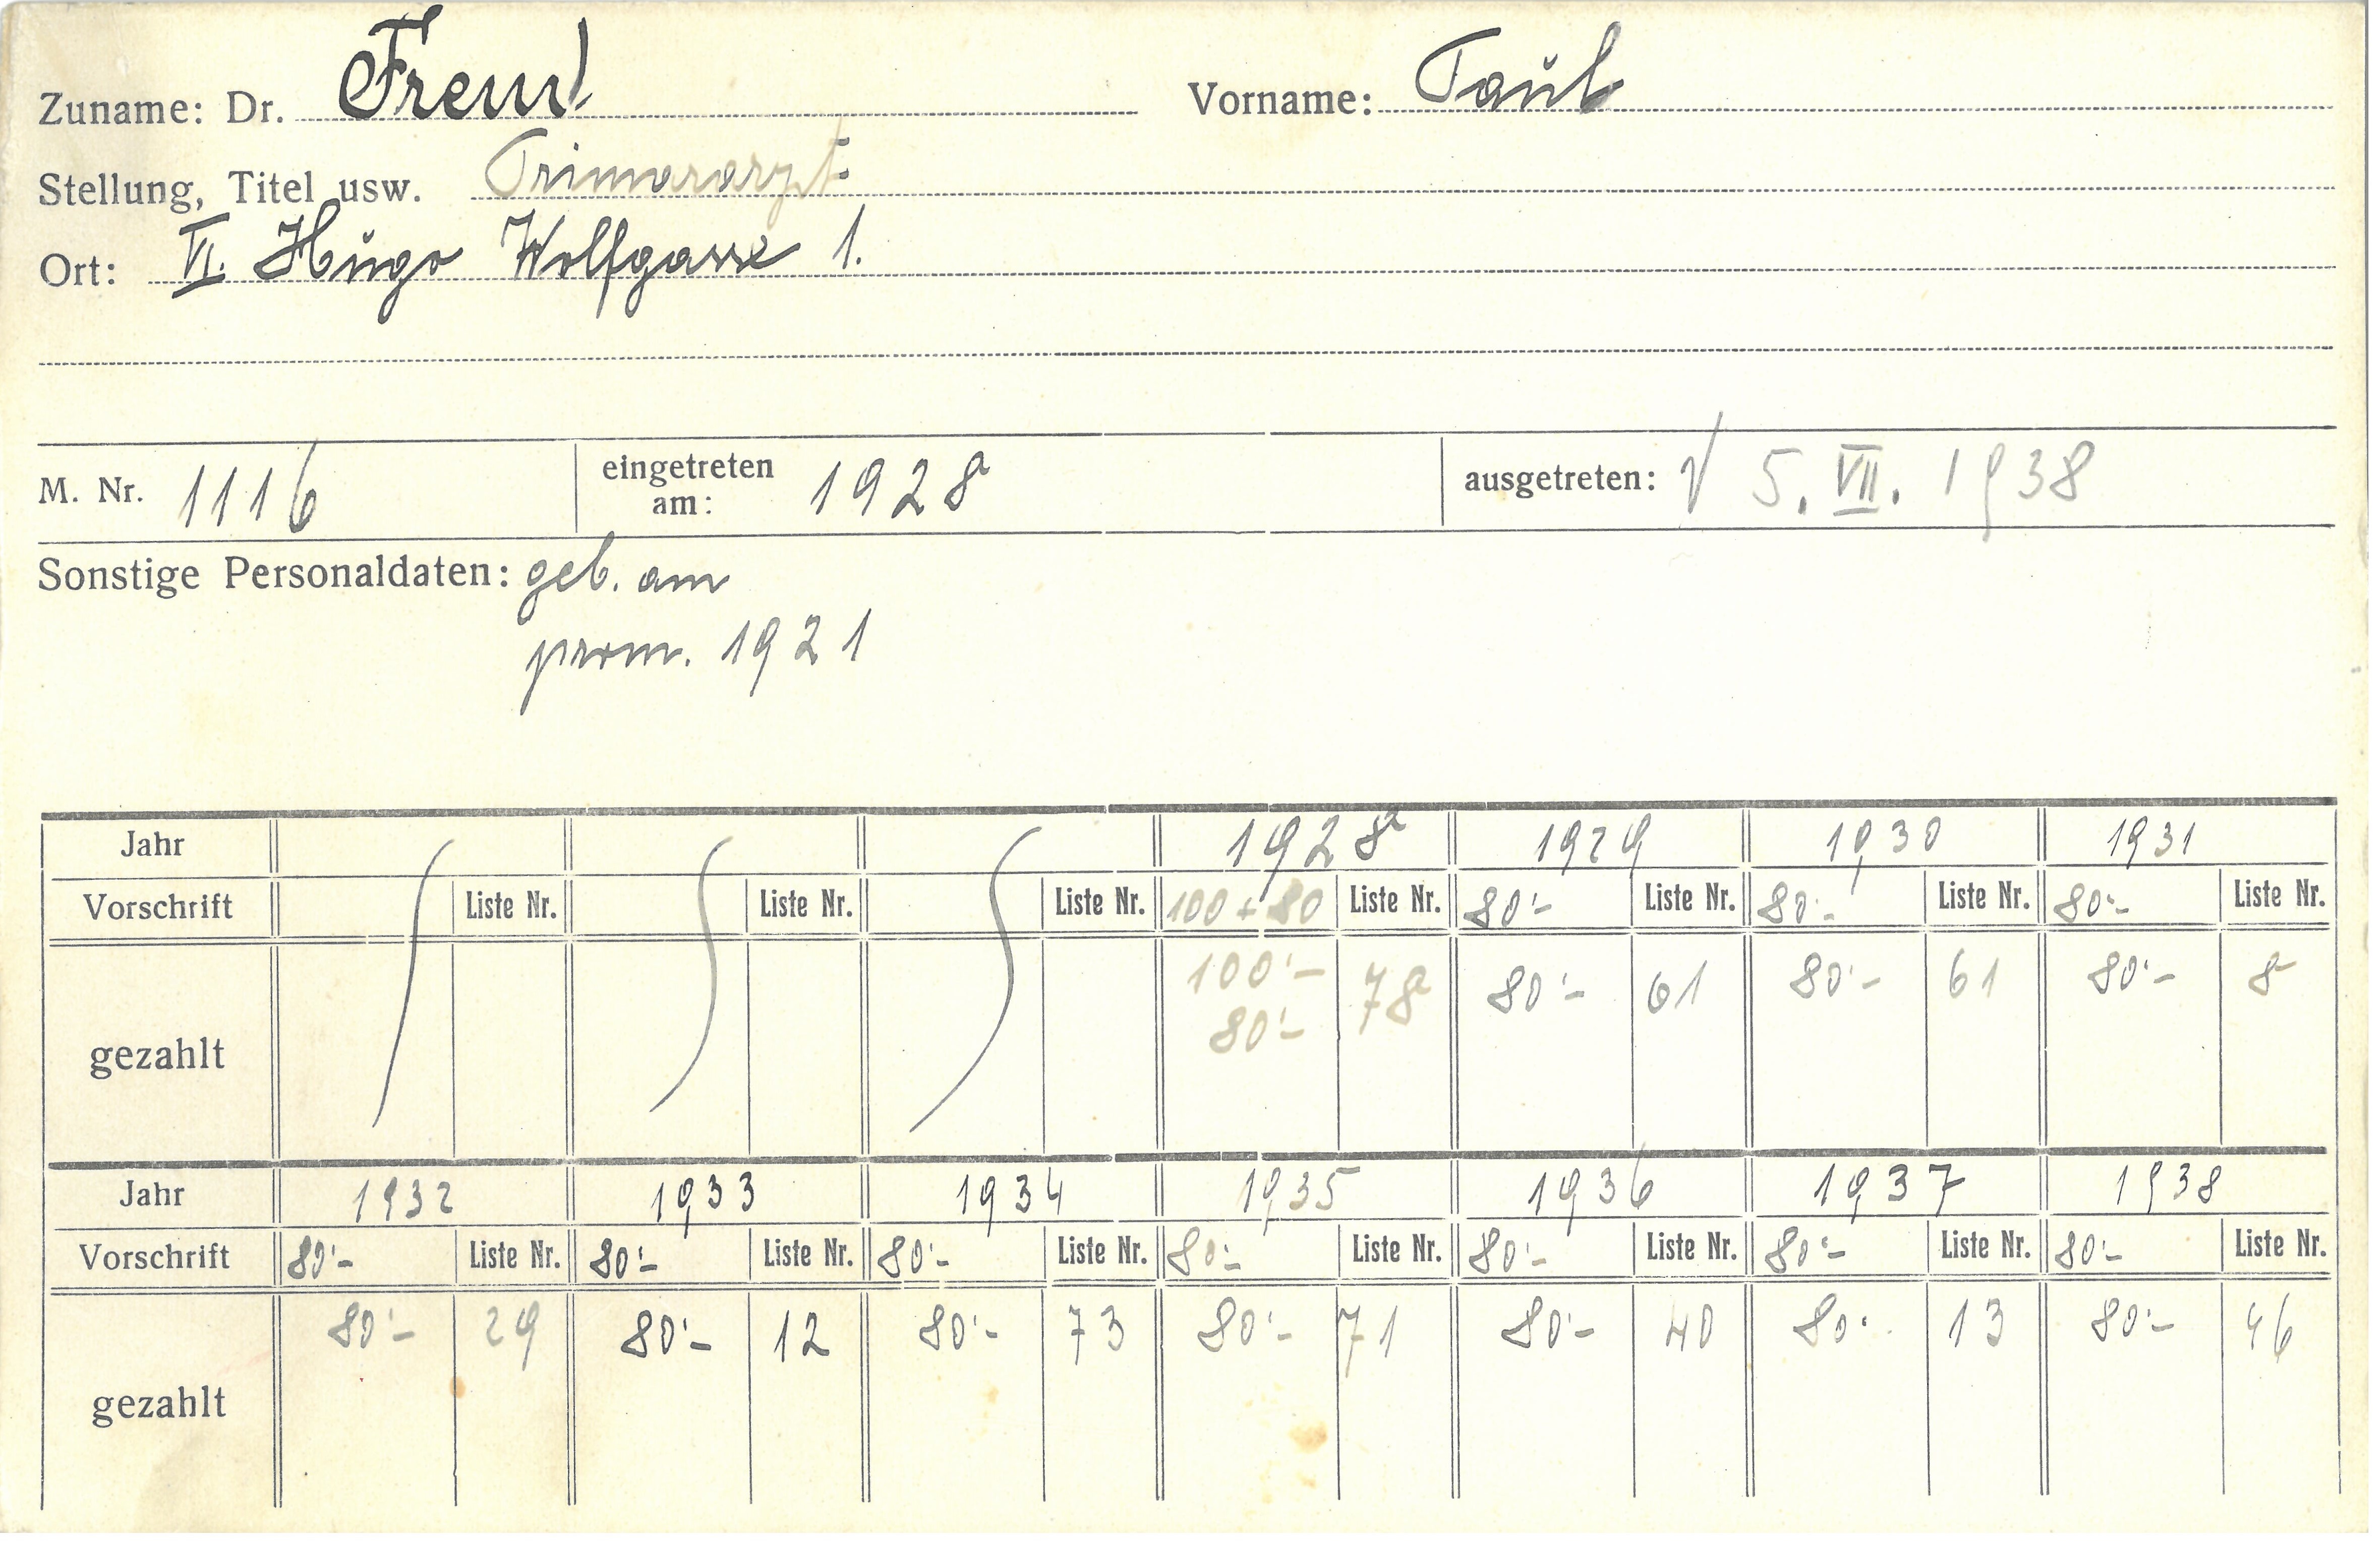 Zuname: Dr. Freud Vorname: Paul
Stellung, Titel usw. Primararzt
Ort: VI. Hugo Wolfgasse 1.
M. Nr. 1116 eingetreten am: 1928 ausgetreten: 5. VII. 1938
Sonstige Personaldaten: geb. am
prom. 1921
Jahr 1928 1929 1930 1931
Vorschrift Liste Nr. Liste Nr. Liste Nr. 100 + 80 Liste Nr. 80'- Liste Nr. 80'- Liste Nr. 80'- Liste Nr.
gezahlt 100'- 80'- 78 80'- 61 80'- 61 80'- 8
Jahr 1932 1933 1934 1935 1936 1937 1938
Vorschrift 80'- Liste Nr. 80'- Liste Nr. 80'- Liste Nr. 80'- Liste Nr. 80'- Liste Nr. 80'- Liste Nr. 80'- Liste Nr.
gezahlt 80'- 29 80'- 12 80'- 73 80'- 71 80'- 40 80'- 13 80'- 46